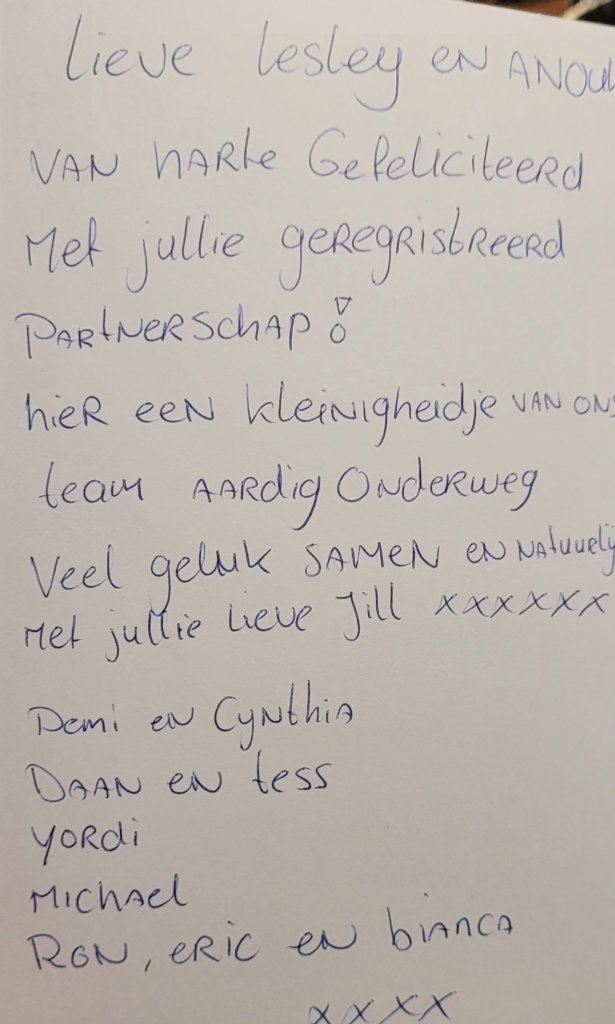 Lieve Lesley en Anouk
van harte Gefeliciteerd
Met jullie geregristreerd
Partnerschap!
hier een kleinigheidje van ons
team Aardig Onderweg
Veel geluk samen en natuurlij
Met jullie lieve Jill xxxxxx
Demi en Cynthia
Daan en tess
Yordi
Michael
Ron, eric en bianca
xxxx